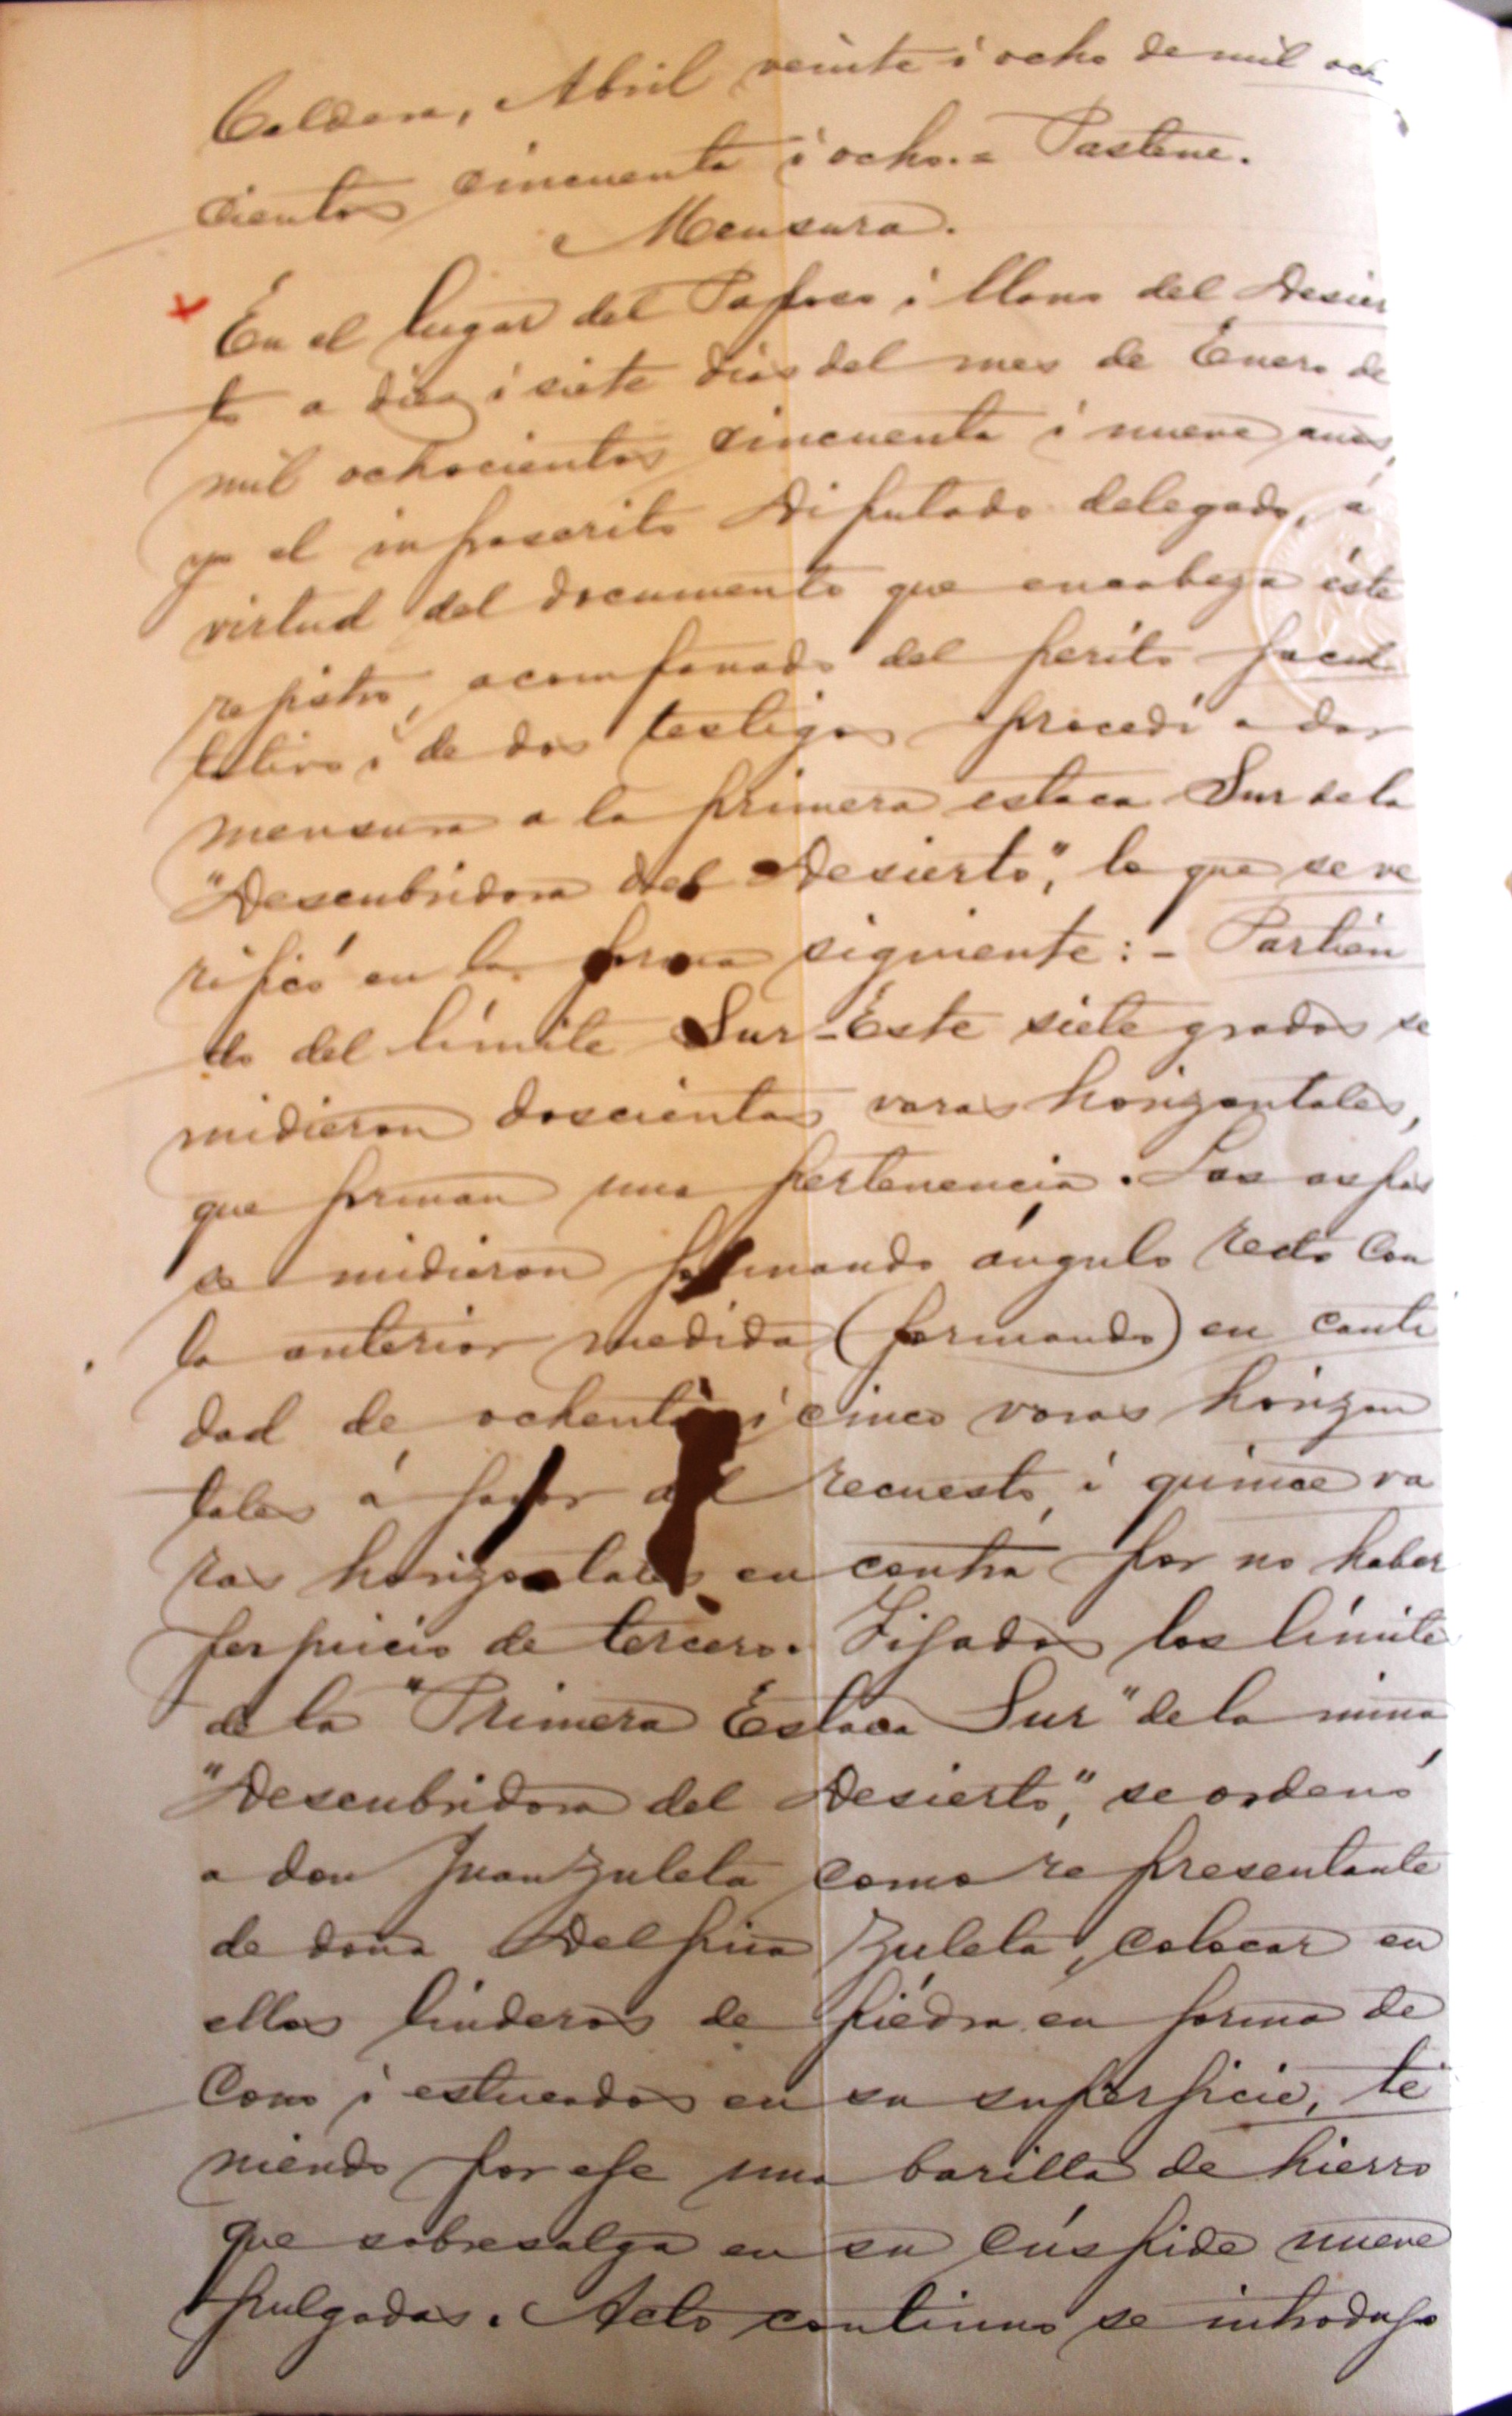 Caldera, Abril veinte i ocho de mil och
cientos cincuenta i ocho.= Pastene.
Mensura.
En el lugar del Paposo i llano del Desier
to a diez i siete dias del mes de Enero de
mil ochocientos cincuenta i nueve anos,
yo el infrascrito Diputado delegado, á
virtud del documento que encabeza éste
rejistro, acompañado del perito facul
tativo i de dos testigos procedí a dar
mensura a la primera estaca Sur de la
"Descubridora del Desierto", la que se ve
rificó en la forma siguiente:- Partien
do del límite Sur-Este siete grados se
midieron doscientas varas horizontales,
que forman una pertenencia. Las aspas
se midieron formando ángulo recto con
la anterior medida (formando) en canti
dad de ochenta i cinco varas horizon
tales á favor del recuesto, i quince va
ras horizontales en contra por no haber
perjuicio de tercero. Fijados los límites
de la "Primera Estaca Sur" de la mina
"Descubridora del Desierto", se ordenó
a don Juan Zuleta como representante
de doña Delfina Zuleta, colocar en
ellos linderos de piedra en forma de
Cono i estucados en su superficie, te
niendo por eje una barilla de hierro
que sobresalga en su cúspide nueve
pulgadas. Acto continuo se introdujo